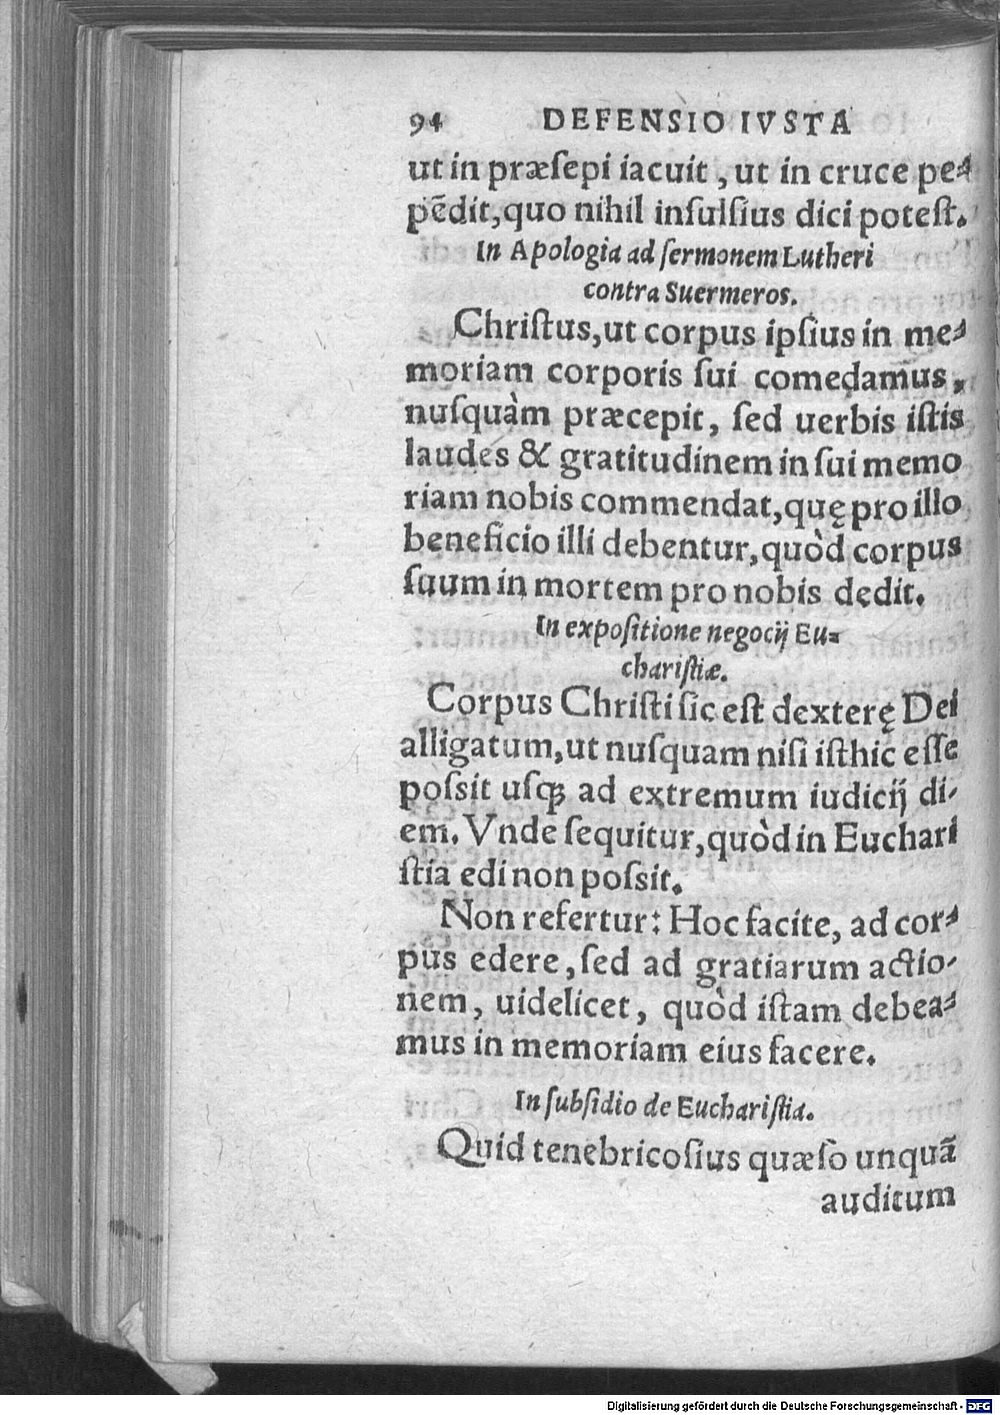 94 DEFENSIO IVSTA
ut in præsepi iacuit, ut in cruce pe-
pēdit, quo nihil insulsius dici potest.
In Apologia ad sermonem Lutheri
contra Suermeros.
Christus, ut corpus ipsius in me-
moriam corporis sui comedamus,
nusquàm præcepit, sed uerbis istis
laudes & gratitudinem in sui memo
riam nobis commendat, quę pro illo
beneficio illi debentur, quòd corpus
suum in mortem pro nobis dedit.
In expositione negocij Eu-
charistiæ.
Corpus Christi sic est dexterę Dei
alligatum, ut nusquam nisi isthic esse
possit usq; ad extremum iudicij di-
em. Vnde sequitur, quòd in Euchari
stia edi non possit.
Non refertur: Hoc facite, ad cor-
pus edere, sed ad gratiarum actio-
nem, uidelicet, quòd istam debea-
mus in memoriam eius facere.
In subsidio de Eucharistia.
Quid tenebricosius quæsò unquā
auditum
Digitalisierung gefördert durch die Deutsche Forschungsgemeinschaft - DFG